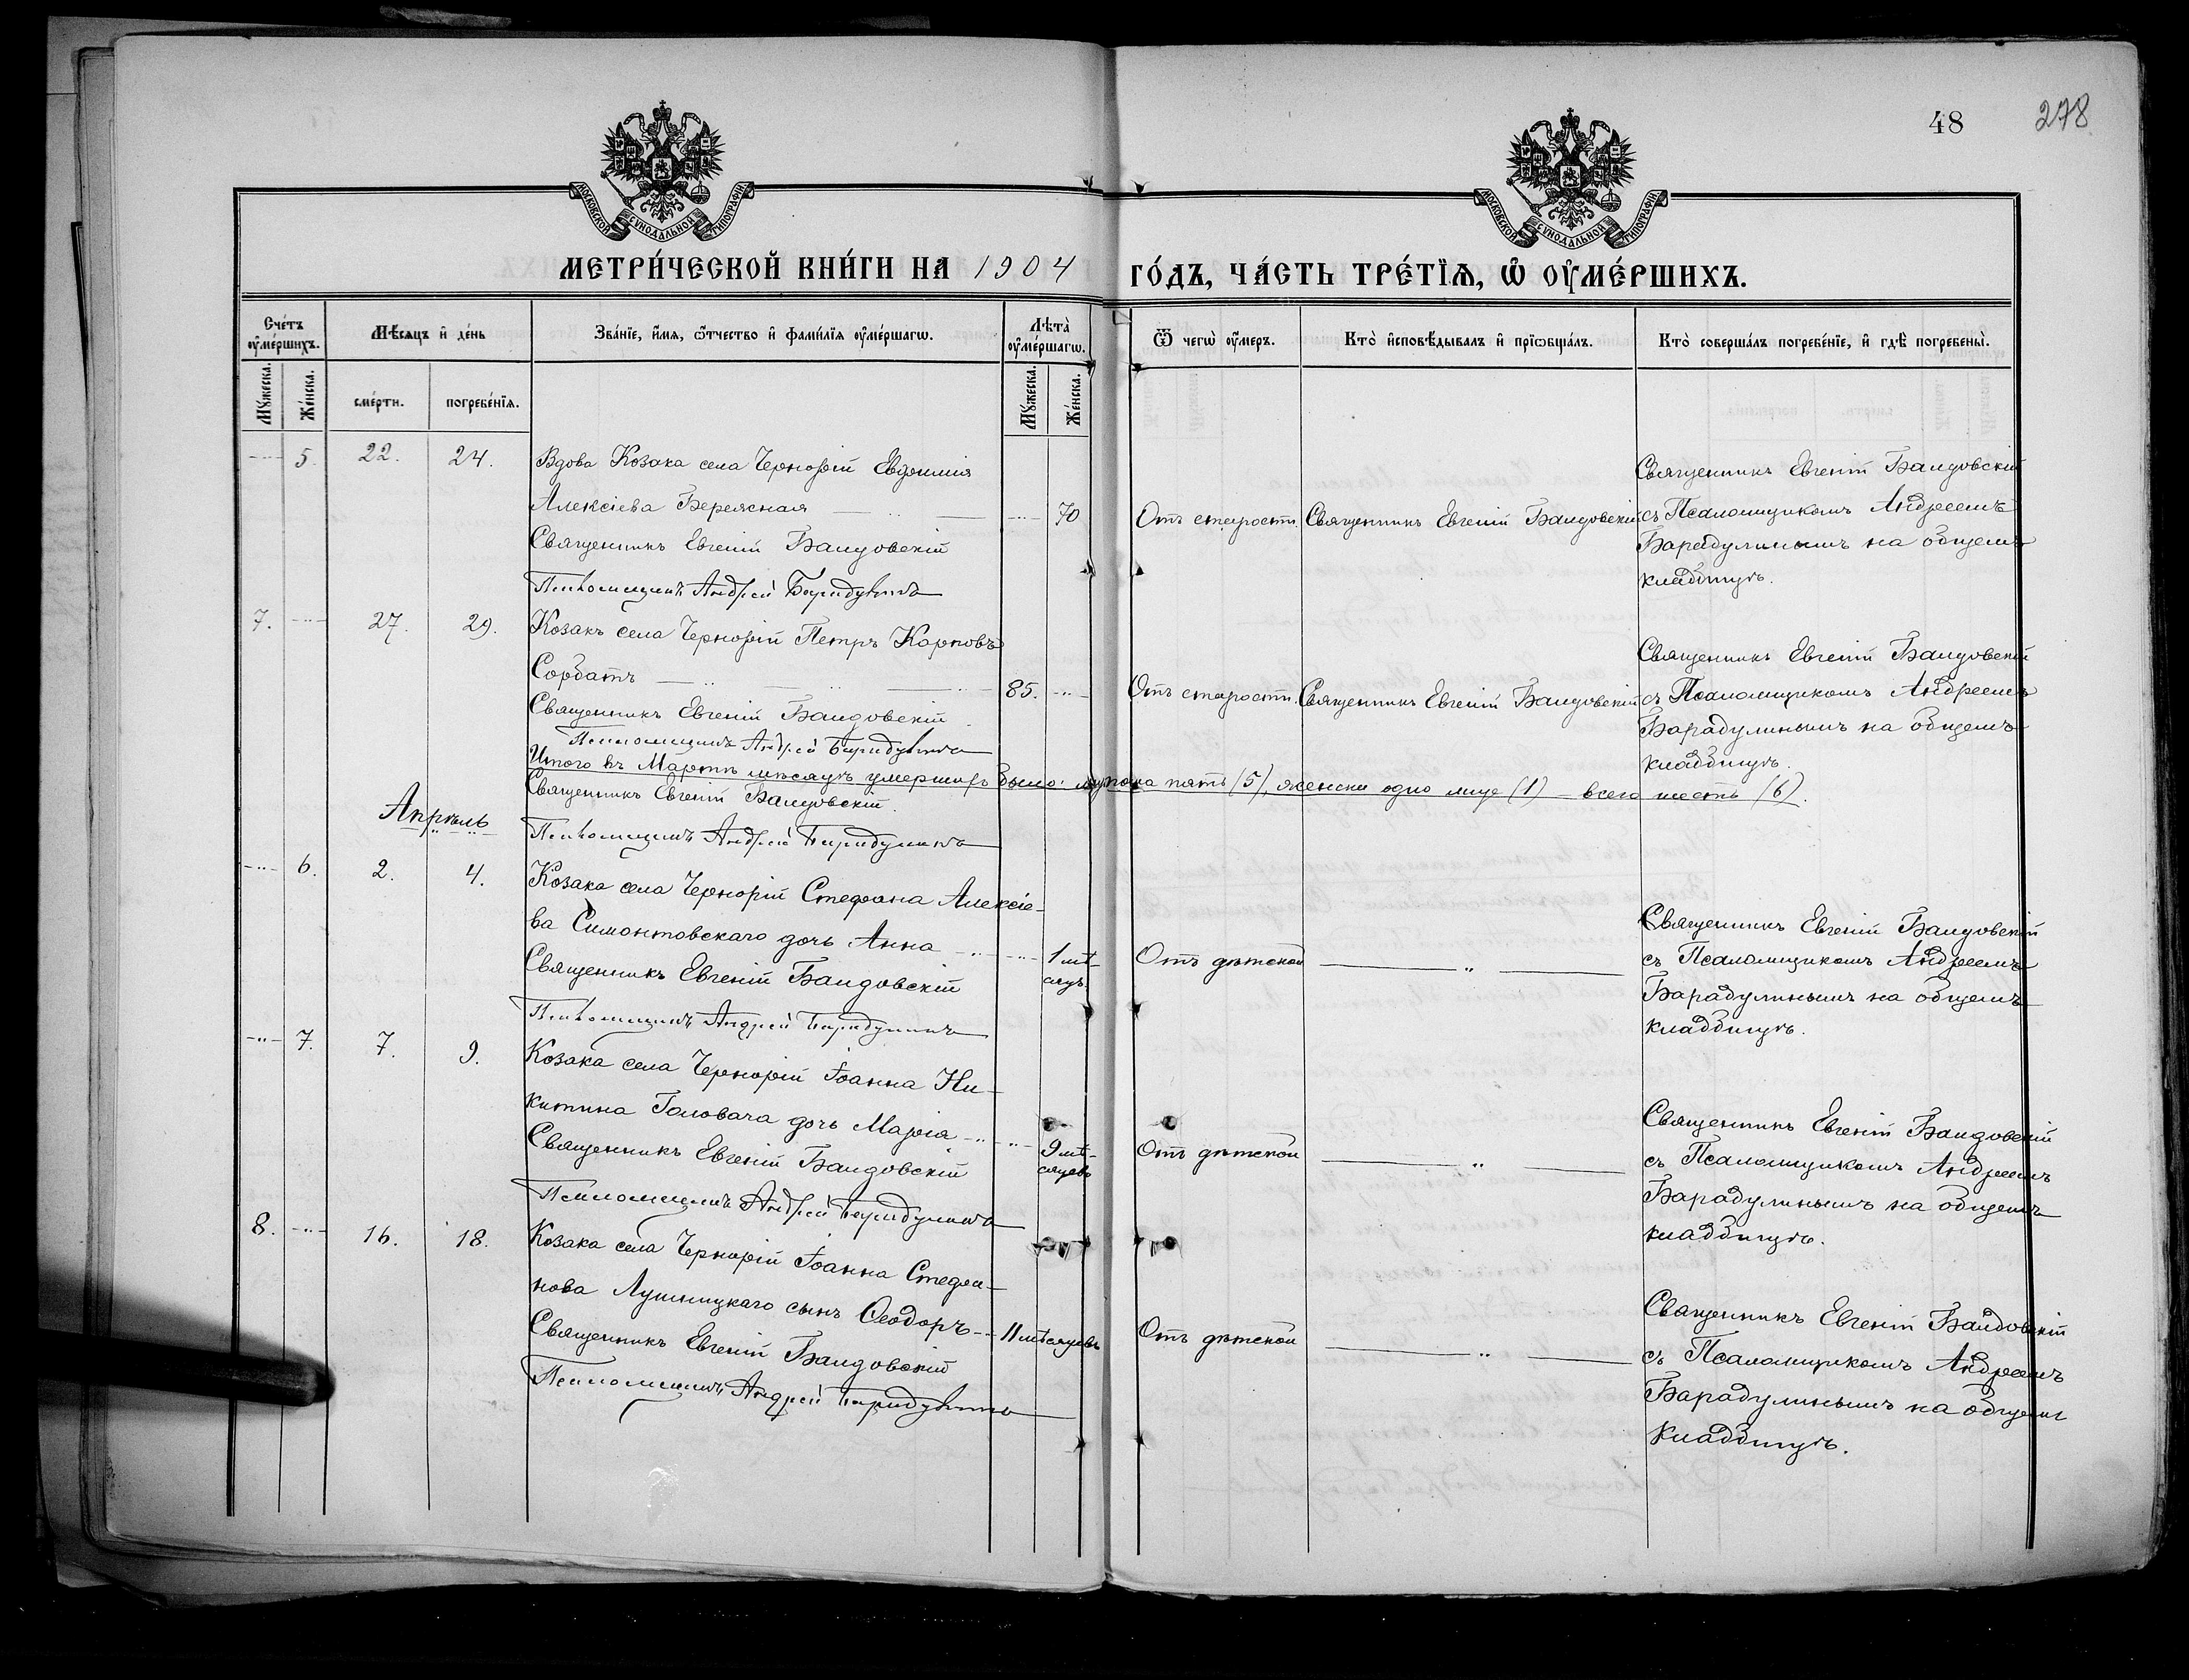 48
278
МОСКОВСКОЙ СѴНОДАЛЬНОЙ ТИПОГРАФІИ
МОСКОВСКОЙ СѴНОДАЛЬНОЙ ТИПОГРАФІИ
МЕТРИ́ЧЕСКОЙ КНИ́ГИ НА 1904 ГО́ДЪ, ЧА́СТЬ ТРЕ́ТЇѦ, Ѽ ОУ҆МЕ́РШИХЪ.
Сче́тъ оу҆ме́ршихъ.
Мѣ́сѧцъ и҆ де́нь
Зва́нїе, и҆́мѧ, ѻ҆́тчество и҆ фамилїѧ оу҆ме́ршагѡ.
Лѣта̀ оу҆ме́ршагѡ.
Ѿ чегѡ̀ оу҆́меръ.
Кто̀ и҆сповѣ́дывалъ и҆ прїѡбща́лъ.
Кто̀ соверша́лъ погребе́нїе, и҆ гдѣ̀ погребены̀.
Мꙋ́жеска.
Же́нска.
сме́рти.
погребе́нїѧ.
Мꙋ́жеска.
Же́нска.
5. 22. 24.
Вдова Козака села Чернорій Евдокимія
Алексіева Бережная 70
Священникъ Евгеній Бандовскій
Псаломщикъ Андрей Барадулинъ
Отъ старости. Священникъ Евгеній Бандовскій
Священникъ Евгеній Бандовскій
съ Псаломщикомъ Андреемъ
Барадулинымъ на общемъ
кладбищѣ.
7. 27. 29.
Козакъ села Чернорій Петръ Карповъ
Сорбатъ 85.
Священникъ Евгеній Бандовскій
Псаломщикъ Андрей Барадулинъ
Отъ старости. Священникъ Евгеній Бандовскій
Священникъ Евгеній Бандовскій
съ Псаломщикомъ Андреемъ
Барадулинымъ на общемъ
кладбищѣ.
Итого въ Мартѣ мѣсяцѣ умершихъ было: мужска пять (5), женска одно лице (1) – всего шесть (6).
Священникъ Евгеній Бандовскій.
Апрѣль
Псаломщикъ Андрей Барадулинъ
6. 2. 4.
Козака села Чернорій Стефана Алексіе-
ва Симонтовскаго дочь Анна 1 мѣ-
сяцъ.
Священникъ Евгеній Бандовскій
Псаломщикъ Андрей Барадулинъ
Отъ дѣтской
Священникъ Евгеній Бандовскій
съ Псаломщикомъ Андреемъ
Барадулинымъ на общемъ
кладбищѣ.
7. 7. 9.
Козака села Чернорій Іоанна Ни-
китина Головача дочь Марія 9 мѣ-
сяцевъ
Священникъ Евгеній Бандовскій
Псаломщикъ Андрей Барадулинъ
Отъ дѣтской
Священникъ Евгеній Бандовскій
съ Псаломщикомъ Андреемъ
Барадулинымъ на общемъ
кладбищѣ.
8. 16. 18.
Козака села Чернорій Іоанна Стефа-
нова Лушницкаго сынъ Ѳеодоръ 11 мѣсяцевъ
Священникъ Евгеній Бандовскій
Псаломщикъ Андрей Барадулинъ
Отъ дѣтской
Священникъ Евгеній Бандовскій
съ Псаломщикомъ Андреемъ
Барадулинымъ на общемъ
кладбищѣ.